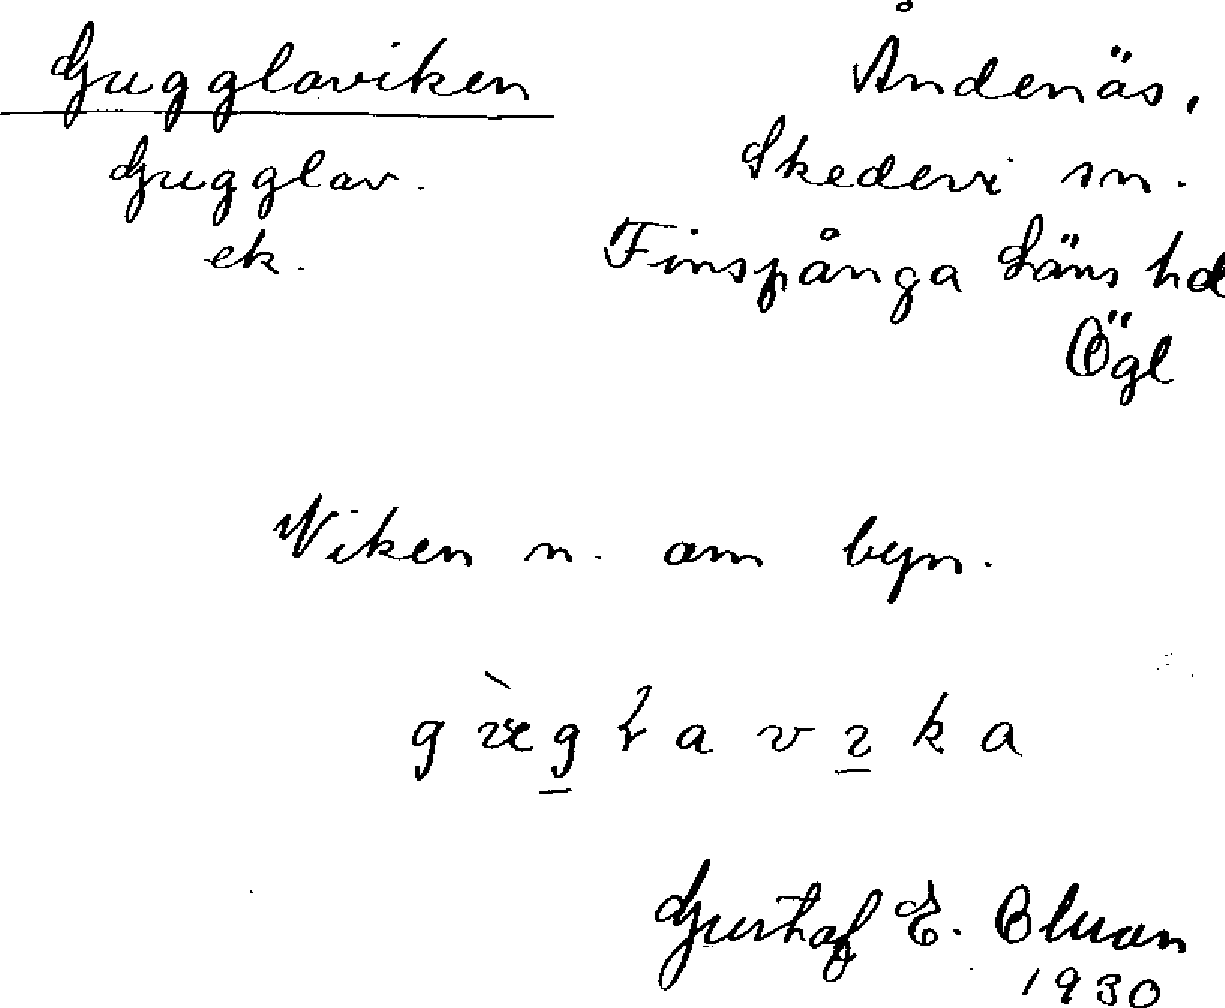 Gugglaviken
Gugglav.
ek.
Åndenäs,
Skedevi sn.
Finspånga Läns hd
Ögl
Viken n. om byn.
Gustaf E.
1930